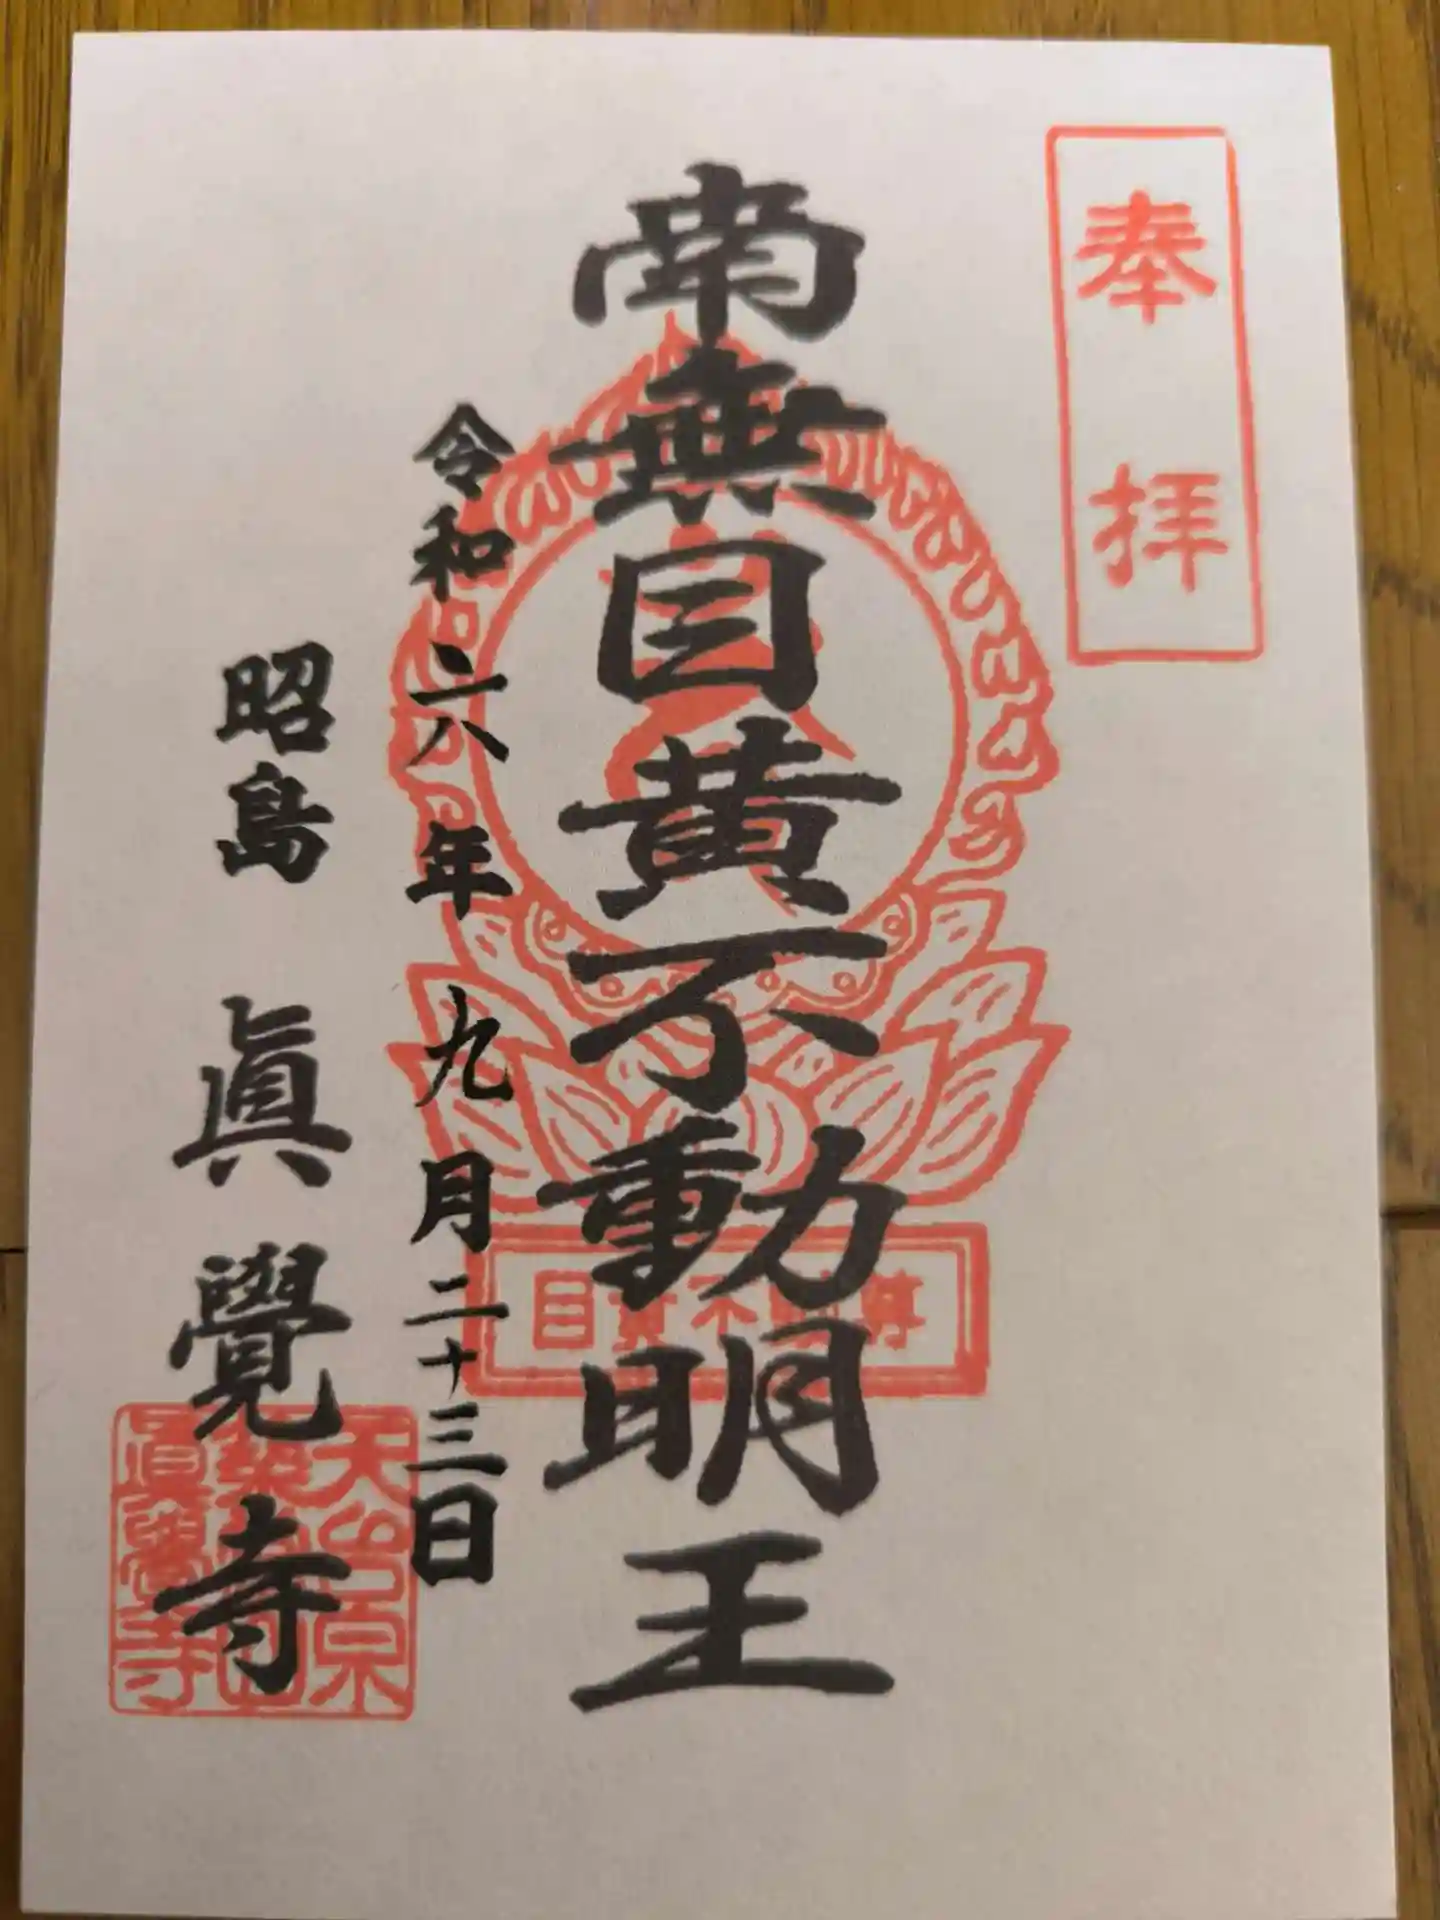 奉拝
南無目黄不動明王
令和六年九月二十三日
昭島 眞覺寺
目黄不動尊
天台宗
眞覺寺